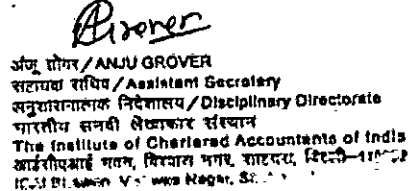 Grover
अंजू ग्रोवर / ANJU GROVER
सहायक सचिव / Assistant Secretary
अनुशासनात्मक निदेशालय / Disciplinary Directorate
भारतीय सनदी लेखाकार संस्थान
The Institute of Chartered Accountants of India
आईसीएआई भवन, विश्वास नगर, शाहदरा, दिल्ली-
Nagar,